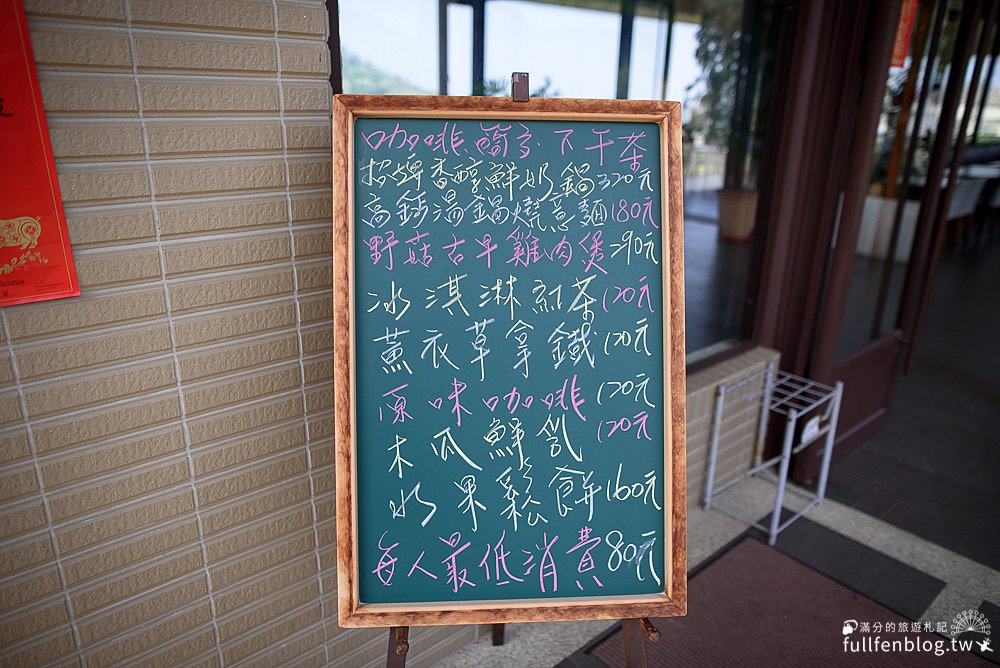 咖啡.簡子.下午茶
招牌香醇鮮奶鍋320元
高鈣湯鍋燒意麵180元
野菇古早雞肉煲290元
冰淇淋紅茶120元
薰衣草拿鐵120元
原味咖啡120元
木瓜鮮乳120元
水果鬆餅160元
每人最低消費80元
滿分的旅遊札記
fullfenblog.tw